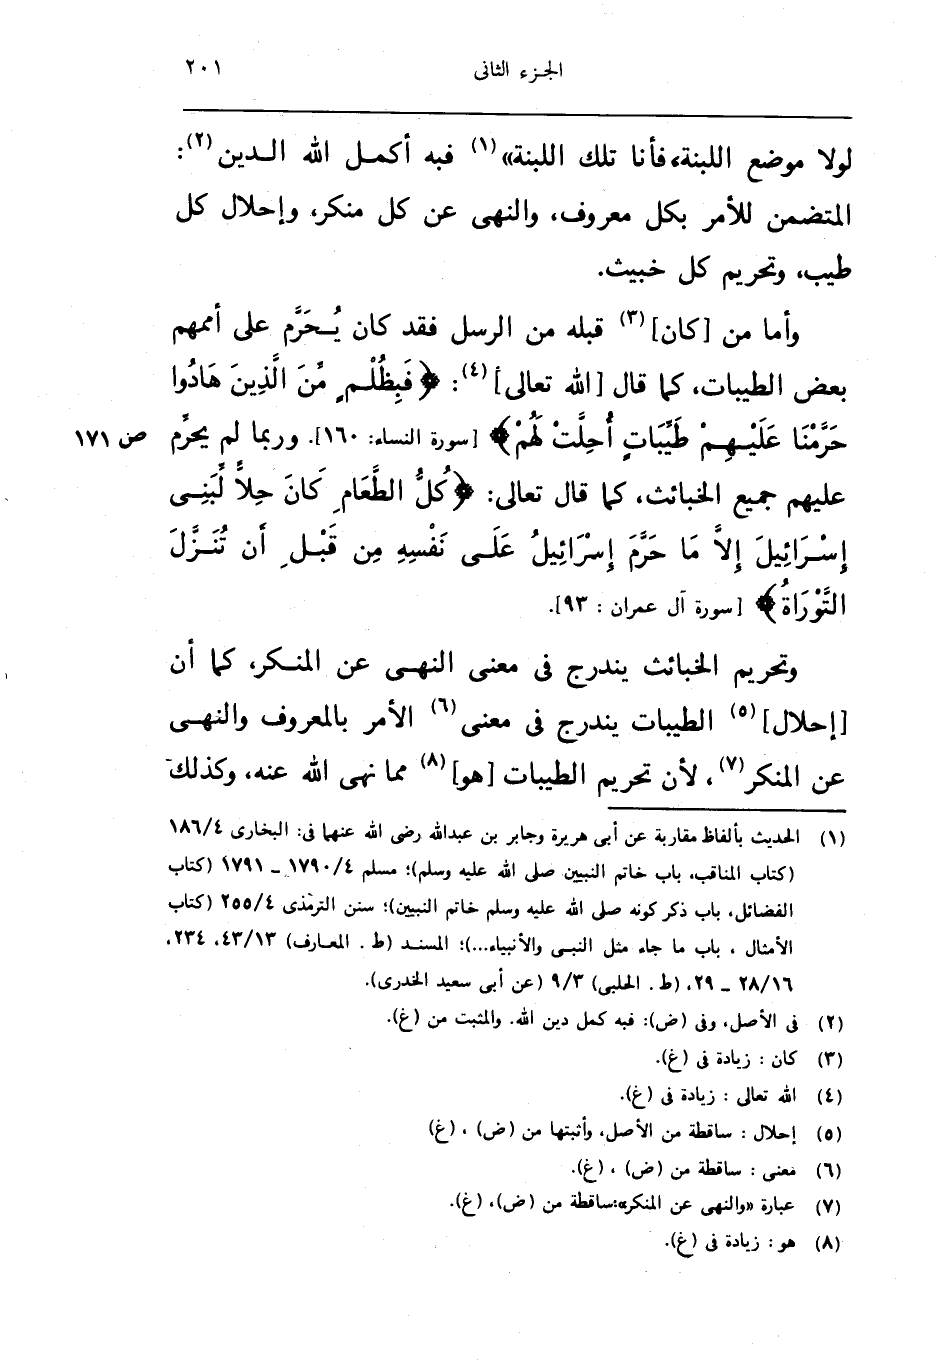 الجزء الثانى ٢٠١
لولا موضع اللبنة، فأنا تلك اللبنة» (١) فبه أكمل الله الدين (٢):
المتضمن للأمر بكل معروف، والنهى عن كل منكر، وإحلال كل
طيب، وتحريم كل خبيث.
وأما من [كان] (٣) قبله من الرسل فقد كان يُحَرَّم على أممهم
بعض الطيبات، كما قال [الله تعالى] (٤): ﴿فَبِظُلْمٍ مِّنَ الَّذِينَ هَادُوا
حَرَّمْنَا عَلَيْهِمْ طَيِّبَاتٍ أُحِلَّتْ لَهُمْ﴾ [سورة النساء: ١٦٠]. وربما لم يحرِّم ص ١٧١
عليهم جميع الخبائث، كما قال تعالى: ﴿كُلُّ الطَّعَامِ كَانَ حِلاًّ لِّبَنِى
إِسْرَائِيلَ إِلاَّ مَا حَرَّمَ إِسْرَائِيلُ عَلَى نَفْسِهِ مِن قَبْلِ أَن تُنَزَّلَ
التَّوْرَاةُ﴾ [سورة آل عمران : ٩٣].
وتحريم الخبائث يندرج فى معنى النهى عن المنكر، كما أن
[إحلال] (٥) الطيبات يندرج فى معنى (٦) الأمر بالمعروف والنهى
عن المنكر (٧)، لأن تحريم الطيبات [هو] (٨) مما نهى الله عنه، وكذلك
(١) الحديث بألفاظ مقاربة عن أبى هريرة وجابر بن عبدالله رضى الله عنهما فى: البخارى ١٨٦/٤
(كتاب المناقب، باب خاتم النبيين صلى الله عليه وسلم)؛ مسلم ١٧٩٠/٤ ــ ١٧٩١ (كتاب
الفضائل، باب ذكر كونه صلى الله عليه وسلم خاتم النبيين)؛ سنن الترمذى ٢٥٥/٤ (كتاب
الأمثال ، باب ما جاء مثل النبى والأنبياء...)؛ المسند (ط . المعارف) ٤٣/١٣، ٢٣٤،
٢٨/١٦ ــ ٢٩، (ط . الحلبى) ٩/٣ (عن أبى سعيد الخدرى).
(٢) فى الأصل، وفى (ض): فبه كمل دين الله. والمثبت من (غ).
(٣) كان : زيادة فى (غ).
(٤) الله تعالى : زيادة فى (غ).
(٥) إحلال : ساقطة من الأصل، وأثبتها من (ض) ، (غ)
(٦) معنى : ساقطة من (ض) ، (غ).
(٧) عبارة «والنهى عن المنكر»:ساقطة من (ض)، (غ).
(٨) هو : زيادة فى (غ).